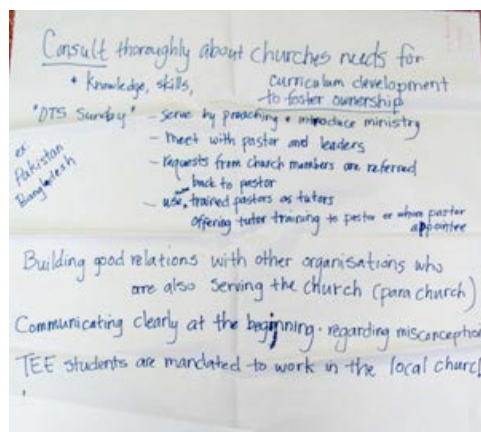 Consult thoroughly about churches needs for
* Knowledge, skills, curriculum development
to foster ownership
"OTS Sunday" - serve by preaching + introduce ministry
- meet with pastor and leaders
ex. Pakistan Bangladesh
- requests from church members are referred
back to pastor
- use trained pastors as tutors
Offering tutor training to pastor or whom pastor
appointee
Building good relations with other organisations who
are also serving the church (para church)
Communicating clearly at the beginning - regarding misconceptio
TEE students are mandated to work in the local church